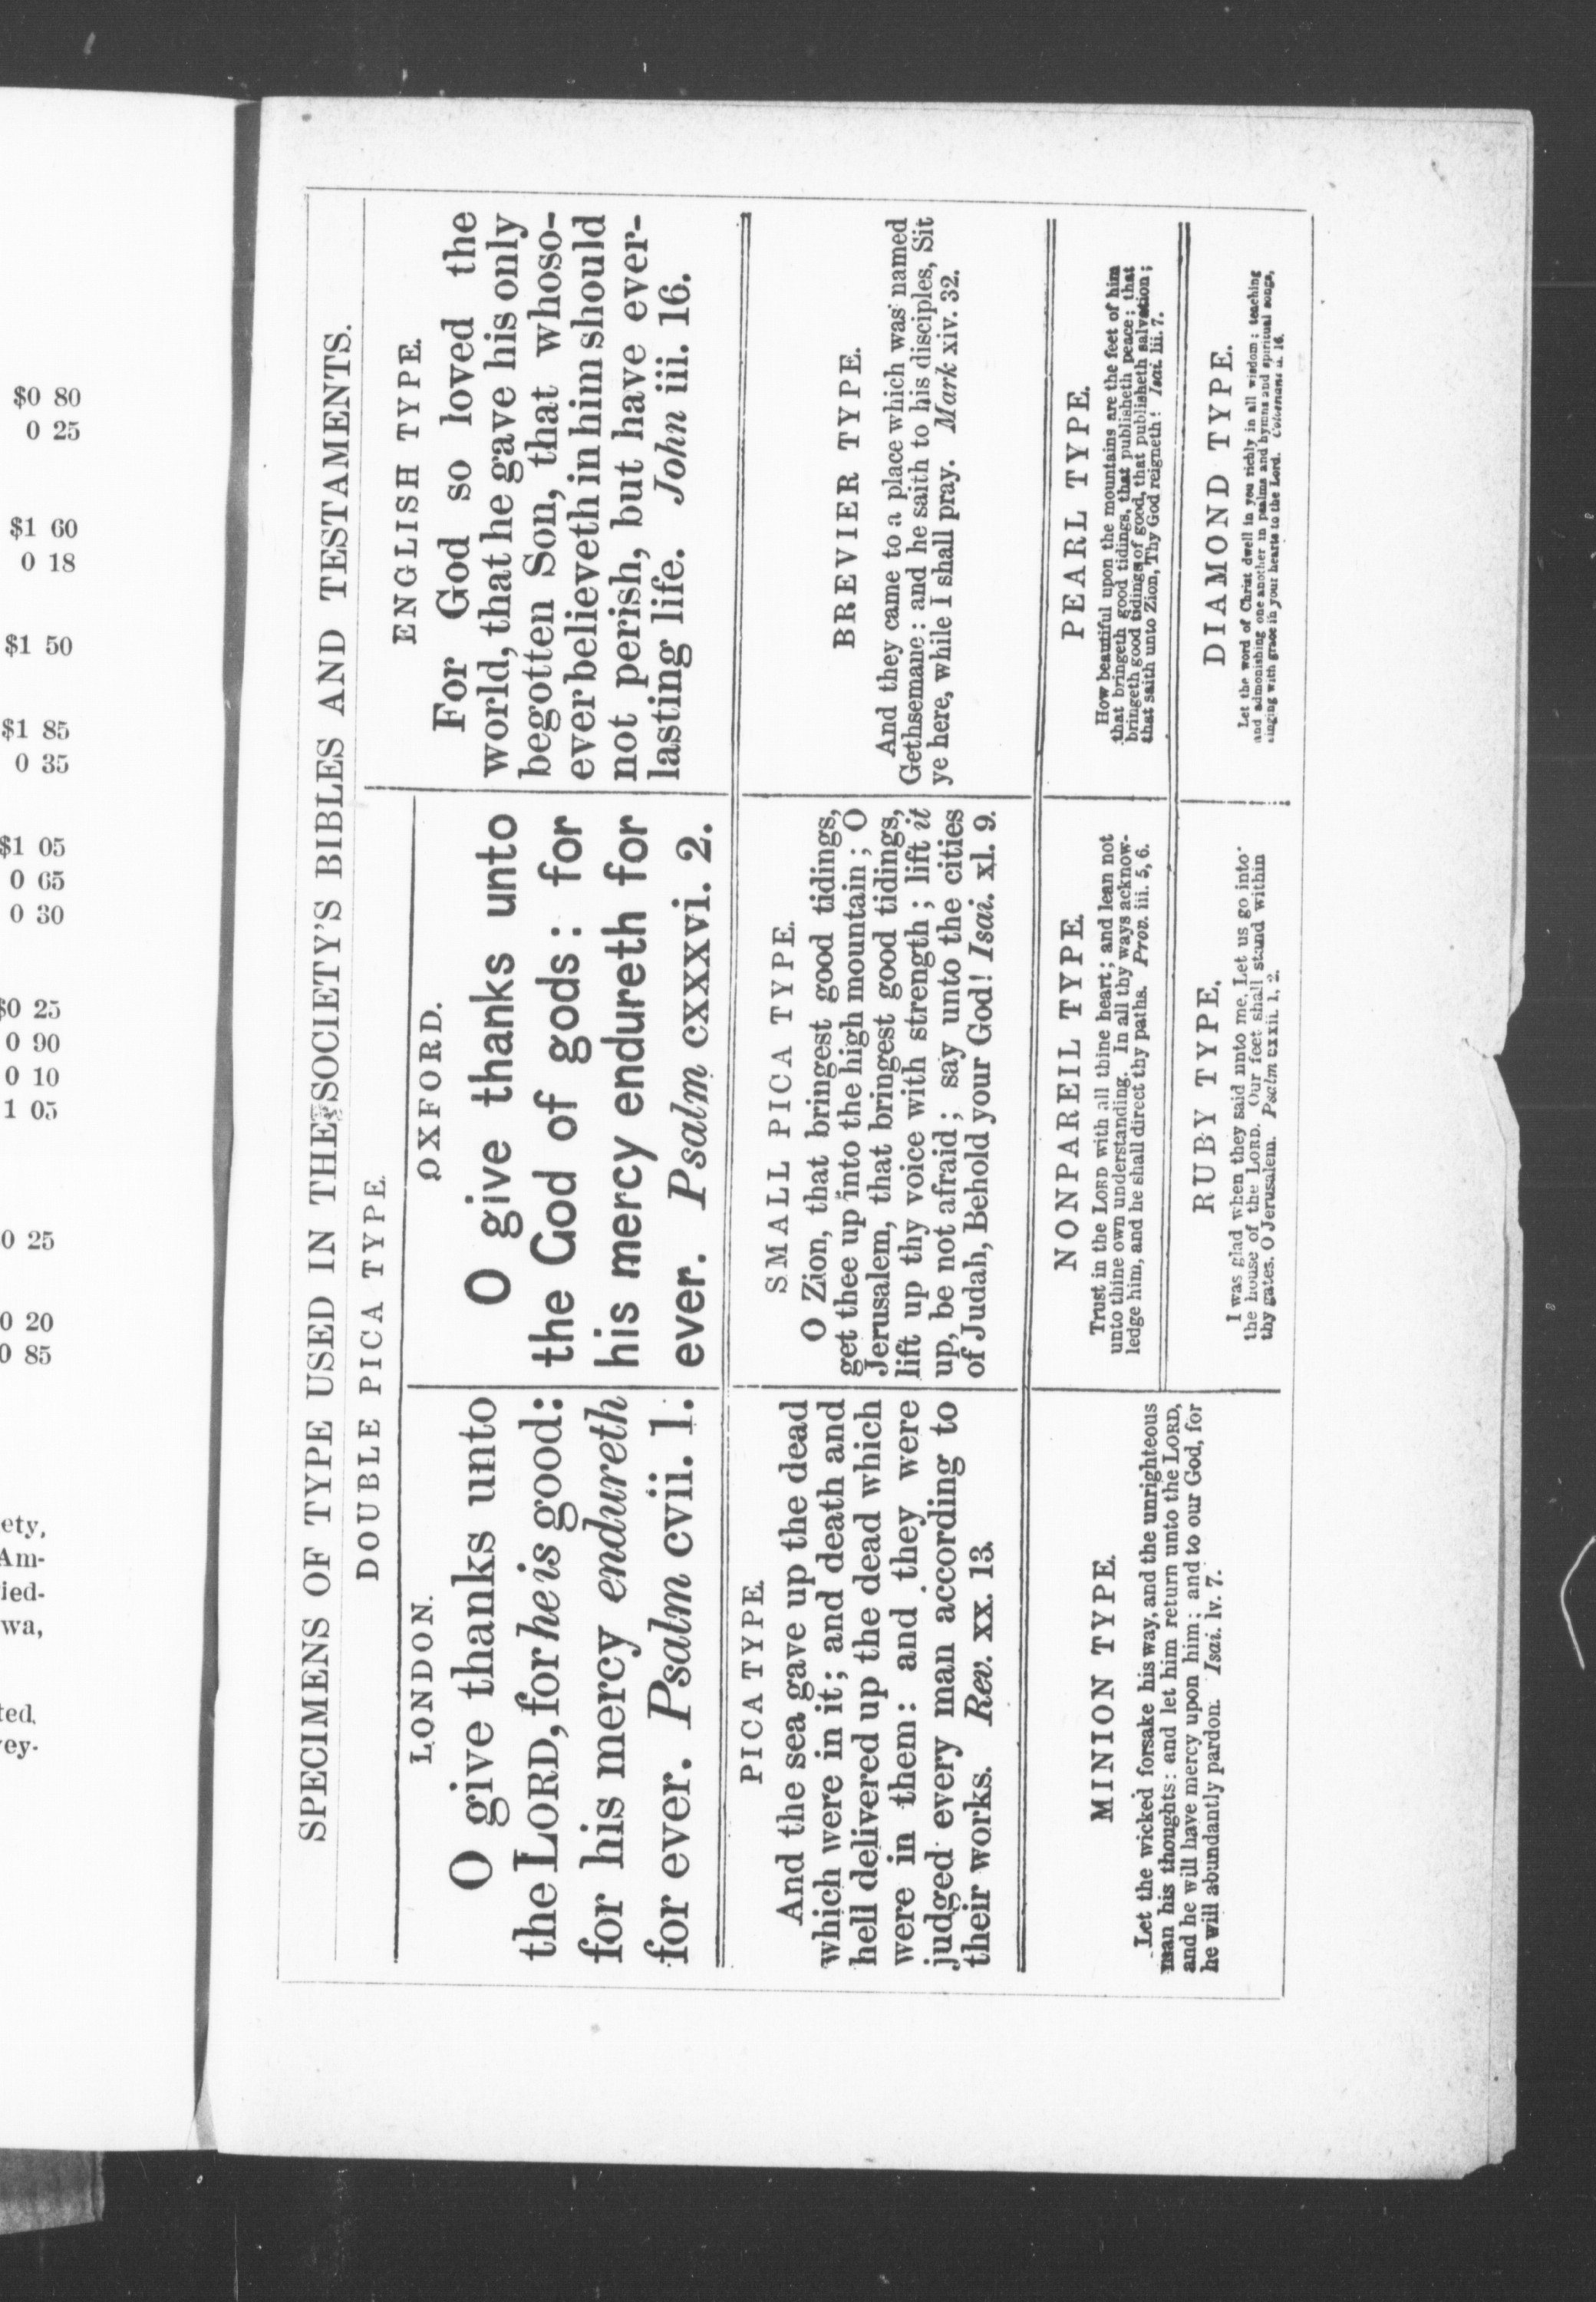 $0 80
0 25
$1 60
0 18
$1 50
$1 85
0 35
$1 05
0 65
0 30
$0 25
0 90
0 10
1 05
0 25
0 20
0 85
ety,
Am-
ied-
wa,
ted.
ey-
SPECIMENS OF TYPE USED IN THE SOCIETY'S BIBLES AND TESTAMENTS.
DOUBLE PICA TYPE.
LONDON.
O give thanks unto
the LORD, for he is good:
for his mercy endureth
for ever. Psalm cvii. 1.
OXFORD.
O give thanks unto
the God of gods: for
his mercy endureth for
ever. Psalm cxxxvi. 2.
ENGLISH TYPE.
For God so loved the
world, that he gave his only
begotten Son, that whoso-
ever believeth in him should
not perish, but have ever-
lasting life. John iii. 16.
PICA TYPE.
And the sea gave up the dead
which were in it; and death and
hell delivered up the dead which
were in them: and they were
judged every man according to
their works. Rev. xx. 13.
SMALL PICA TYPE.
O Zion, that bringest good tidings,
get thee up into the high mountain; O
Jerusalem, that bringest good tidings,
lift up thy voice with strength; lift it
up, be not afraid; say unto the cities
of Judah, Behold your God! Isai. xl. 9.
BREVIER TYPE.
And they came to a place which was named
Gethsemane: and he saith to his disciples, Sit
ye here, while I shall pray. Mark xiv. 32.
MINION TYPE.
Let the wicked forsake his way, and the unrighteous
man his thoughts: and let him return unto the LORD,
and he will have mercy upon him; and to our God, for
he will abundantly pardon. Isai. lv. 7.
NONPAREIL TYPE.
Trust in the LORD with all thine heart; and lean not
unto thine own understanding. In all thy ways acknow-
ledge him, and he shall direct thy paths. Prov. iii. 5, 6.
PEARL TYPE.
How beautiful upon the mountains are the feet of him
that bringeth good tidings, that publisheth peace; that
bringeth good tidings of good, that publisheth salvation;
that saith unto Zion, Thy God reigneth! Isai. lii. 7.
RUBY TYPE.
I was glad when they said unto me, Let us go into
the house of the LORD. Our feet shall stand within
thy gates, O Jerusalem. Psalm cxxii. 1, 2.
DIAMOND TYPE.
Let the word of Christ dwell in you richly in all wisdom; teaching
and admonishing one another in psalms and hymns and spiritual songs,
singing with grace in your hearts to the Lord. Colossians 16.